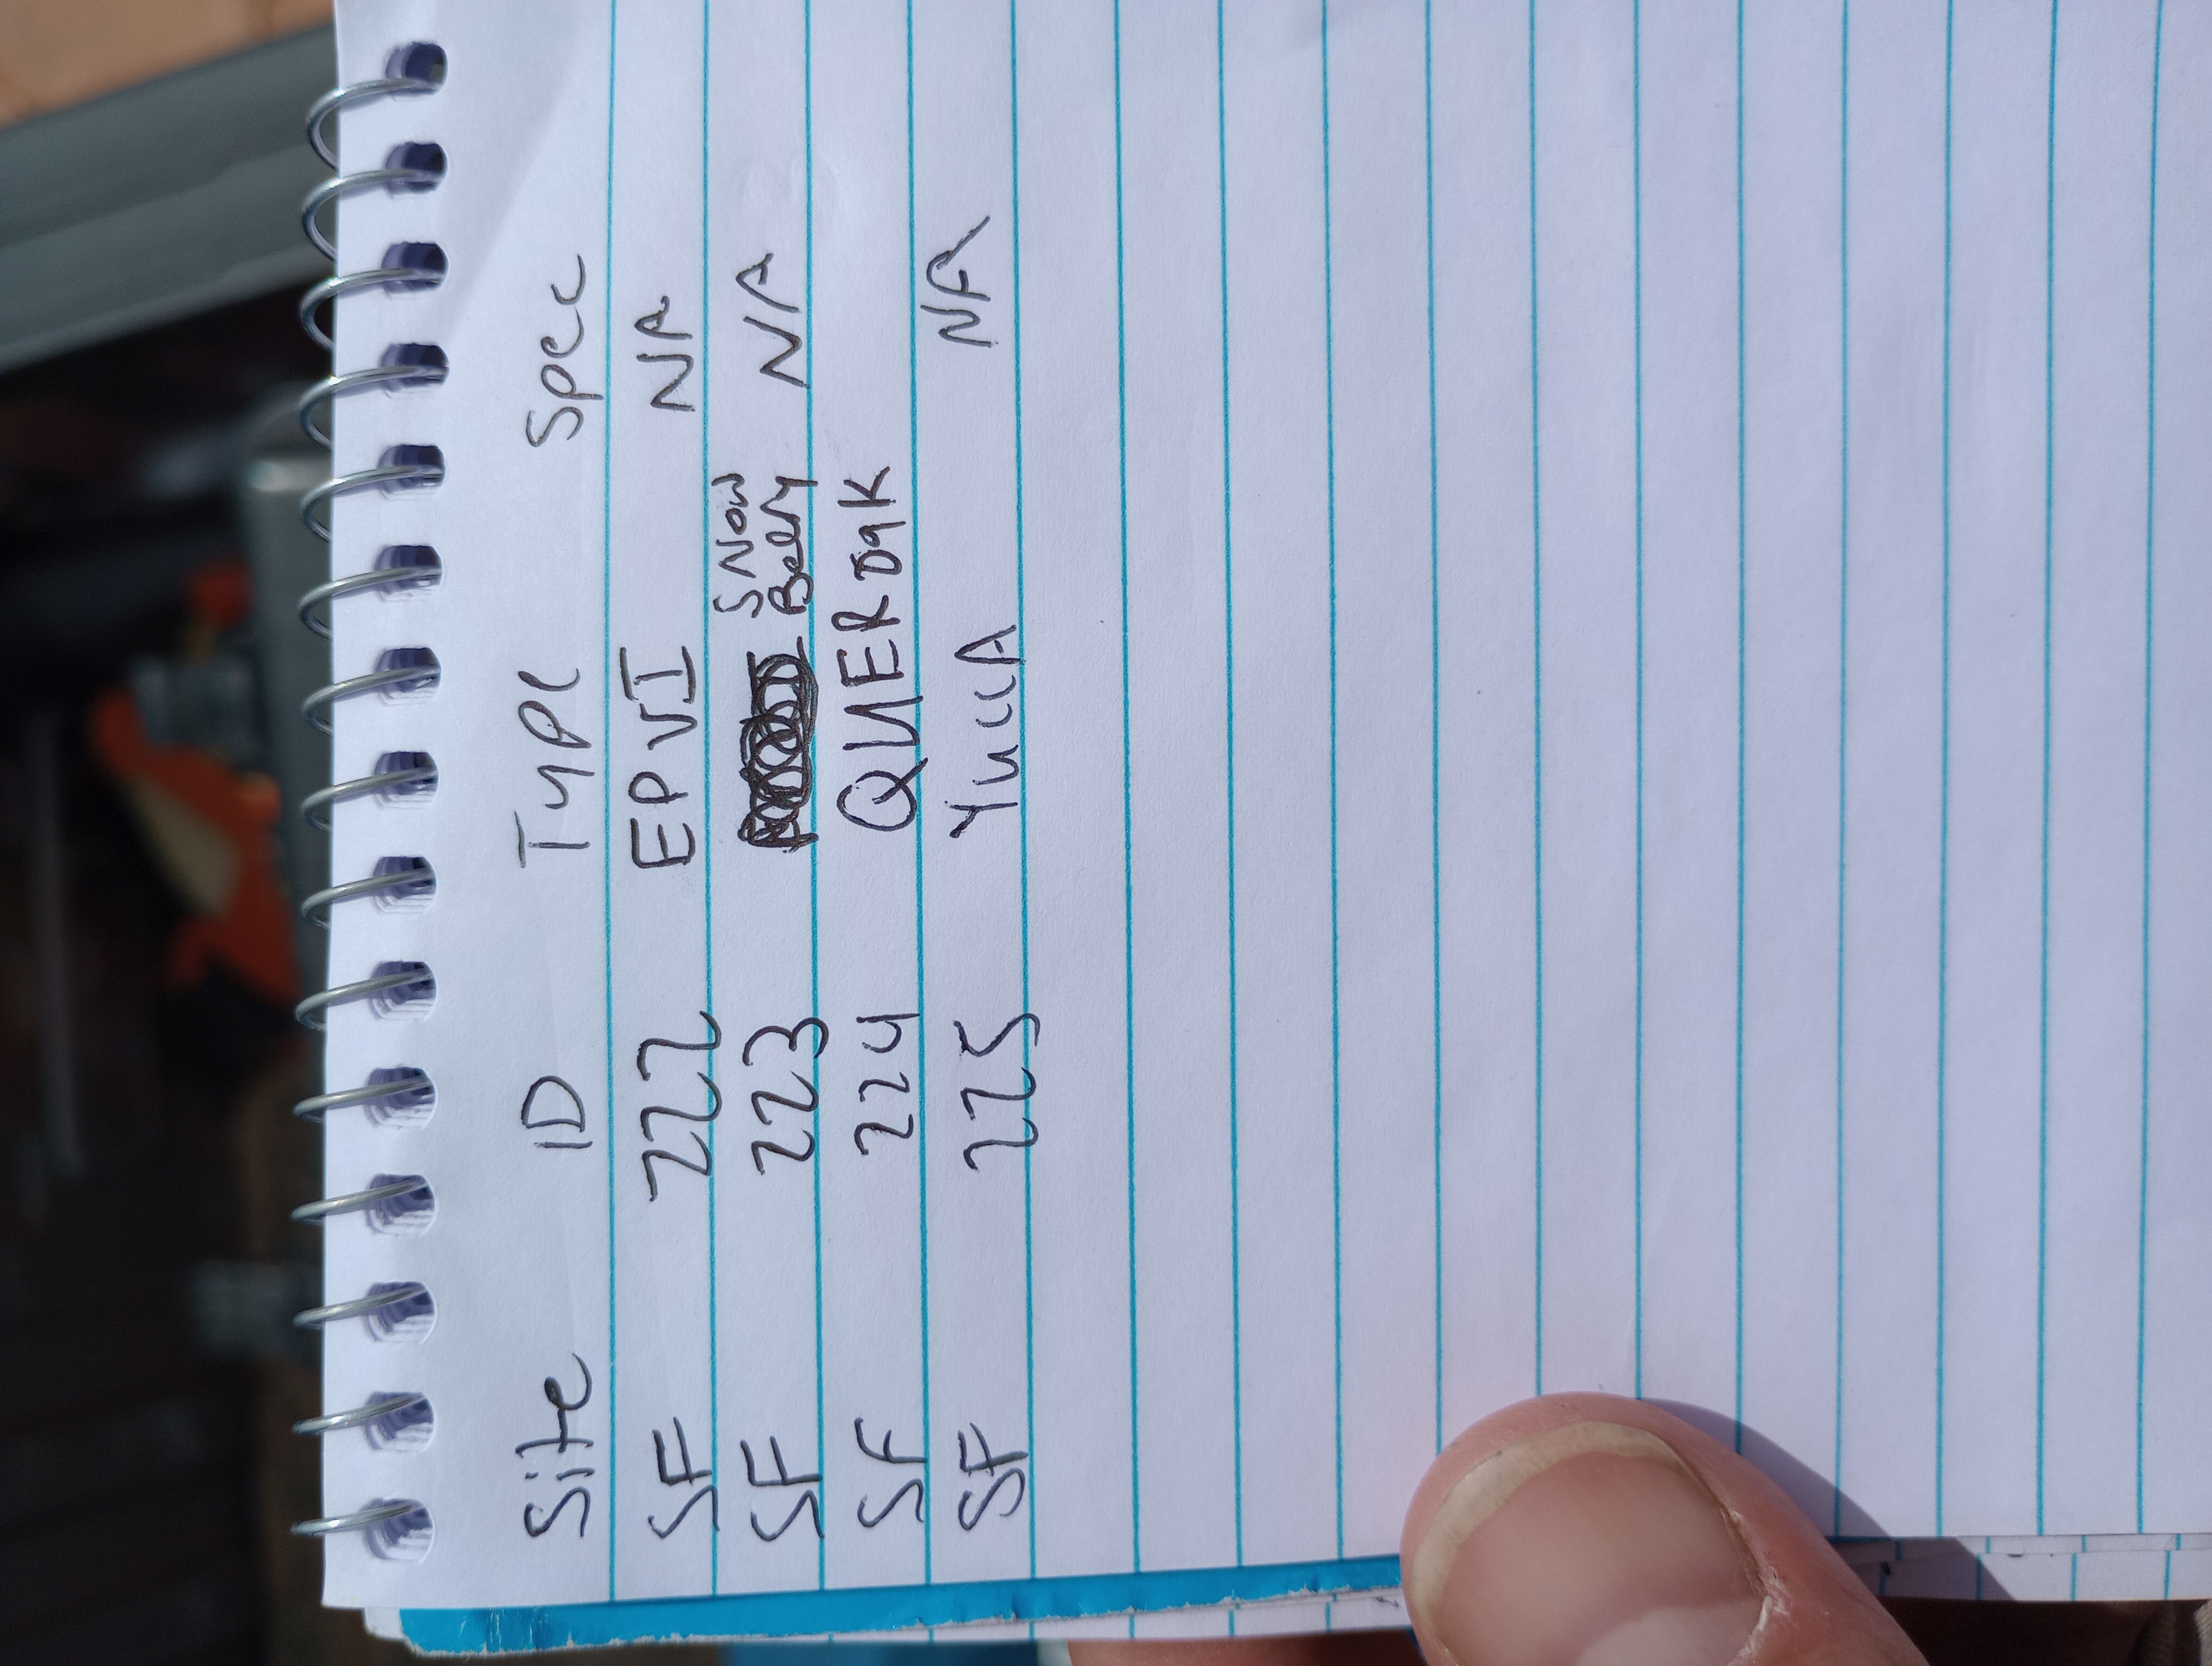 Site ID Type Spec
SF 222 EPVI NA
SF 223 SNow Berry NA
SF 224 QUER oak
SF 225 YuccA NA